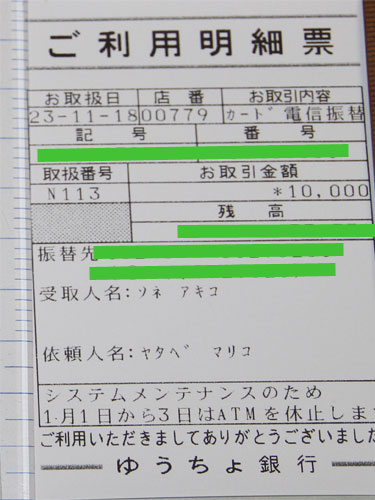 ご利用明細票
お取扱日 店番 お取引内容
23-11-18 00779 カード電信振替
記号 番号
取扱番号 お取引金額
N113 *10,000
残高
振替先
受取人名:ソネ アキコ
依頼人名:ヤタベ マリコ
システムメンテナンスのため
1月1日から3日はATMを休止しま
ご利用いただきましてありがとうございました
ゆうちょ銀行